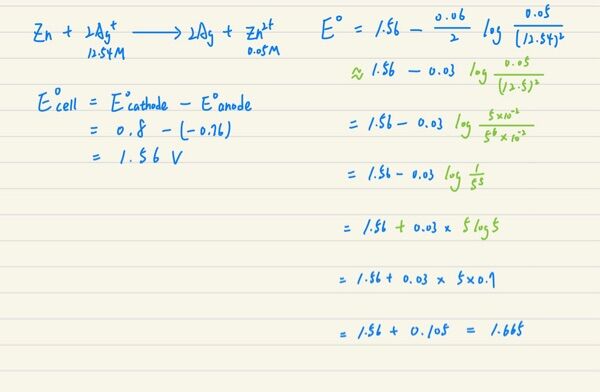 Zn + 2Ag⁺ ⟶ 2Ag + Zn²⁺
12.54M 0.05M
E°cell = E°cathode − E°anode
= 0.8 − (−0.76)
= 1.56 V
E° = 1.56 − 0.06/2 log 0.05/(12.54)²
≈ 1.56 − 0.03 log 0.05/(12.5)²
= 1.56 − 0.03 log 5×10⁻²/5⁶×10⁻²
= 1.56 − 0.03 log 1/5⁵
= 1.56 + 0.03 × 5log5
= 1.56 + 0.03 × 5×0.7
= 1.56 + 0.105 = 1.665